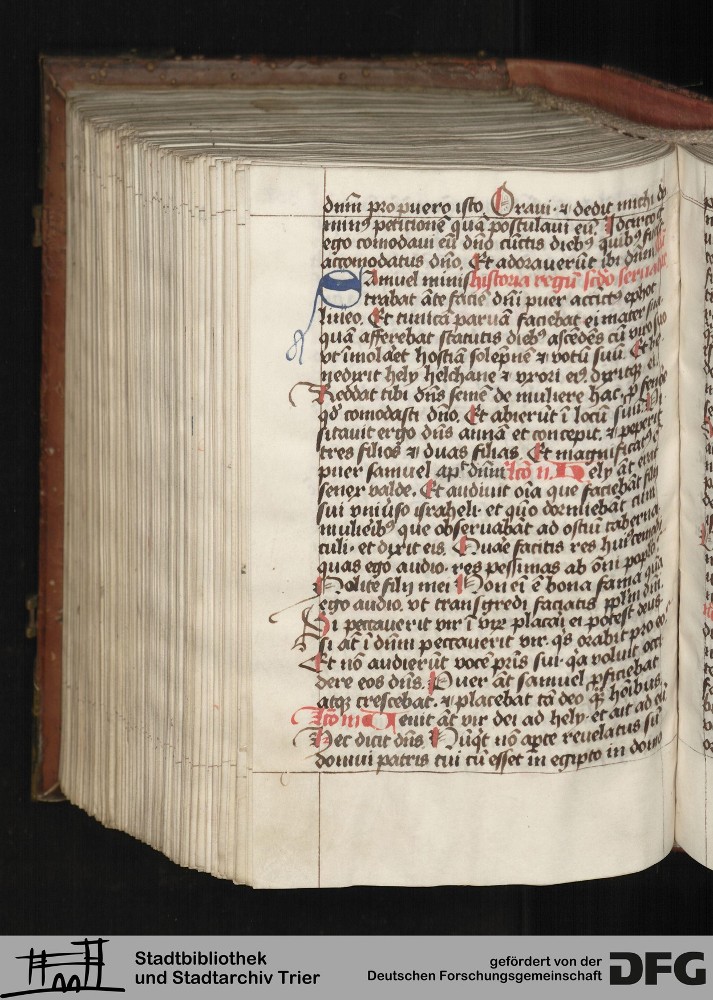 dnm̄ pro puero isto. Oraui· ⁊ dedit michi do
minꝰ petitionē quā postulaui eū. Idcirco ⁊
ego comodaui eū dn̄o cūctis diebꝰ quibꝰ
accomodatus dn̄o. Et adorauerūt ibi dn̄m
Samuel minis historia regū scd̄o
trabat āte faciē dn̄i puer accītꝰ ephot
lineo. Et tunicā paruā faciebat ei mater sua
quā afferebat statutis diebꝰ ascēdēs cū viro suo
vt īmolaret hostiā solēpnē ⁊ votū suū. Et be
nedixit hely helchane ⁊ vxori eiꝰ dixitqꝫ ei
Reddat tibi dn̄s semē de muliere hac ꝓ fenore
qd̓ comodasti dn̄o. Et abierūt ī locū suū. Vi
sitauit ergo dn̄s annā et concepit· ⁊ peperit
tres filios ⁊ duas filias. Et magnificatꝰ ē
puer samuel apt̓ dn̄m lc̄o ii. Hely āt erat
senex valde. Et audiuit oīa que faciebāt filij
sui vniuso israheli· et quō dormiebāt cum
mulieribꝰ que obseruabāt ad ostiū taberna
culi· et dixit eis. Quare facitis res huiꝰcemōi
quas ego audio· res pessimas ab om̄i poplo.
Nolite filij mei Non ei ē bona fama quā
ego audio. vt transgredi faciatis pplm dn̄i.
Si peccauerit vir ī vix placari ei potest deus
si āt ī dn̄m peccauerit vir· qs orabit pro eo.
Et nō audierūt vocē pris sui· qa voluit occi
dere eos dn̄s. Puer āt samuel ꝓficiebat
atqꝫ crescebat· ⁊ placebat tā deo qꝫ hoībus.
lc̄o iii Uenit āt vir dei ad hely· et ait ad eū
Hec dicit dn̄s Nūqt nō apte reuelatus sū
domui patris tui cū esset in egipto in domo
Stadtbibliothek
und Stadtarchiv Trier
gefördert von der
Deutschen Forschungsgemeinschaft
DFG